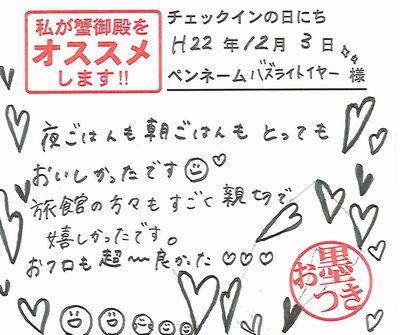 私が蟹御殿を
オススメ
します!!
チェックインの日にち
H22年12月3日
ペンネーム バズライトイヤー 様
夜ごはんも朝ごはんも とっても
おいしかったです
旅館の方々もすごく親切で
嬉しかったです。
おフロも超〜良かった♡♡♡
お墨つき